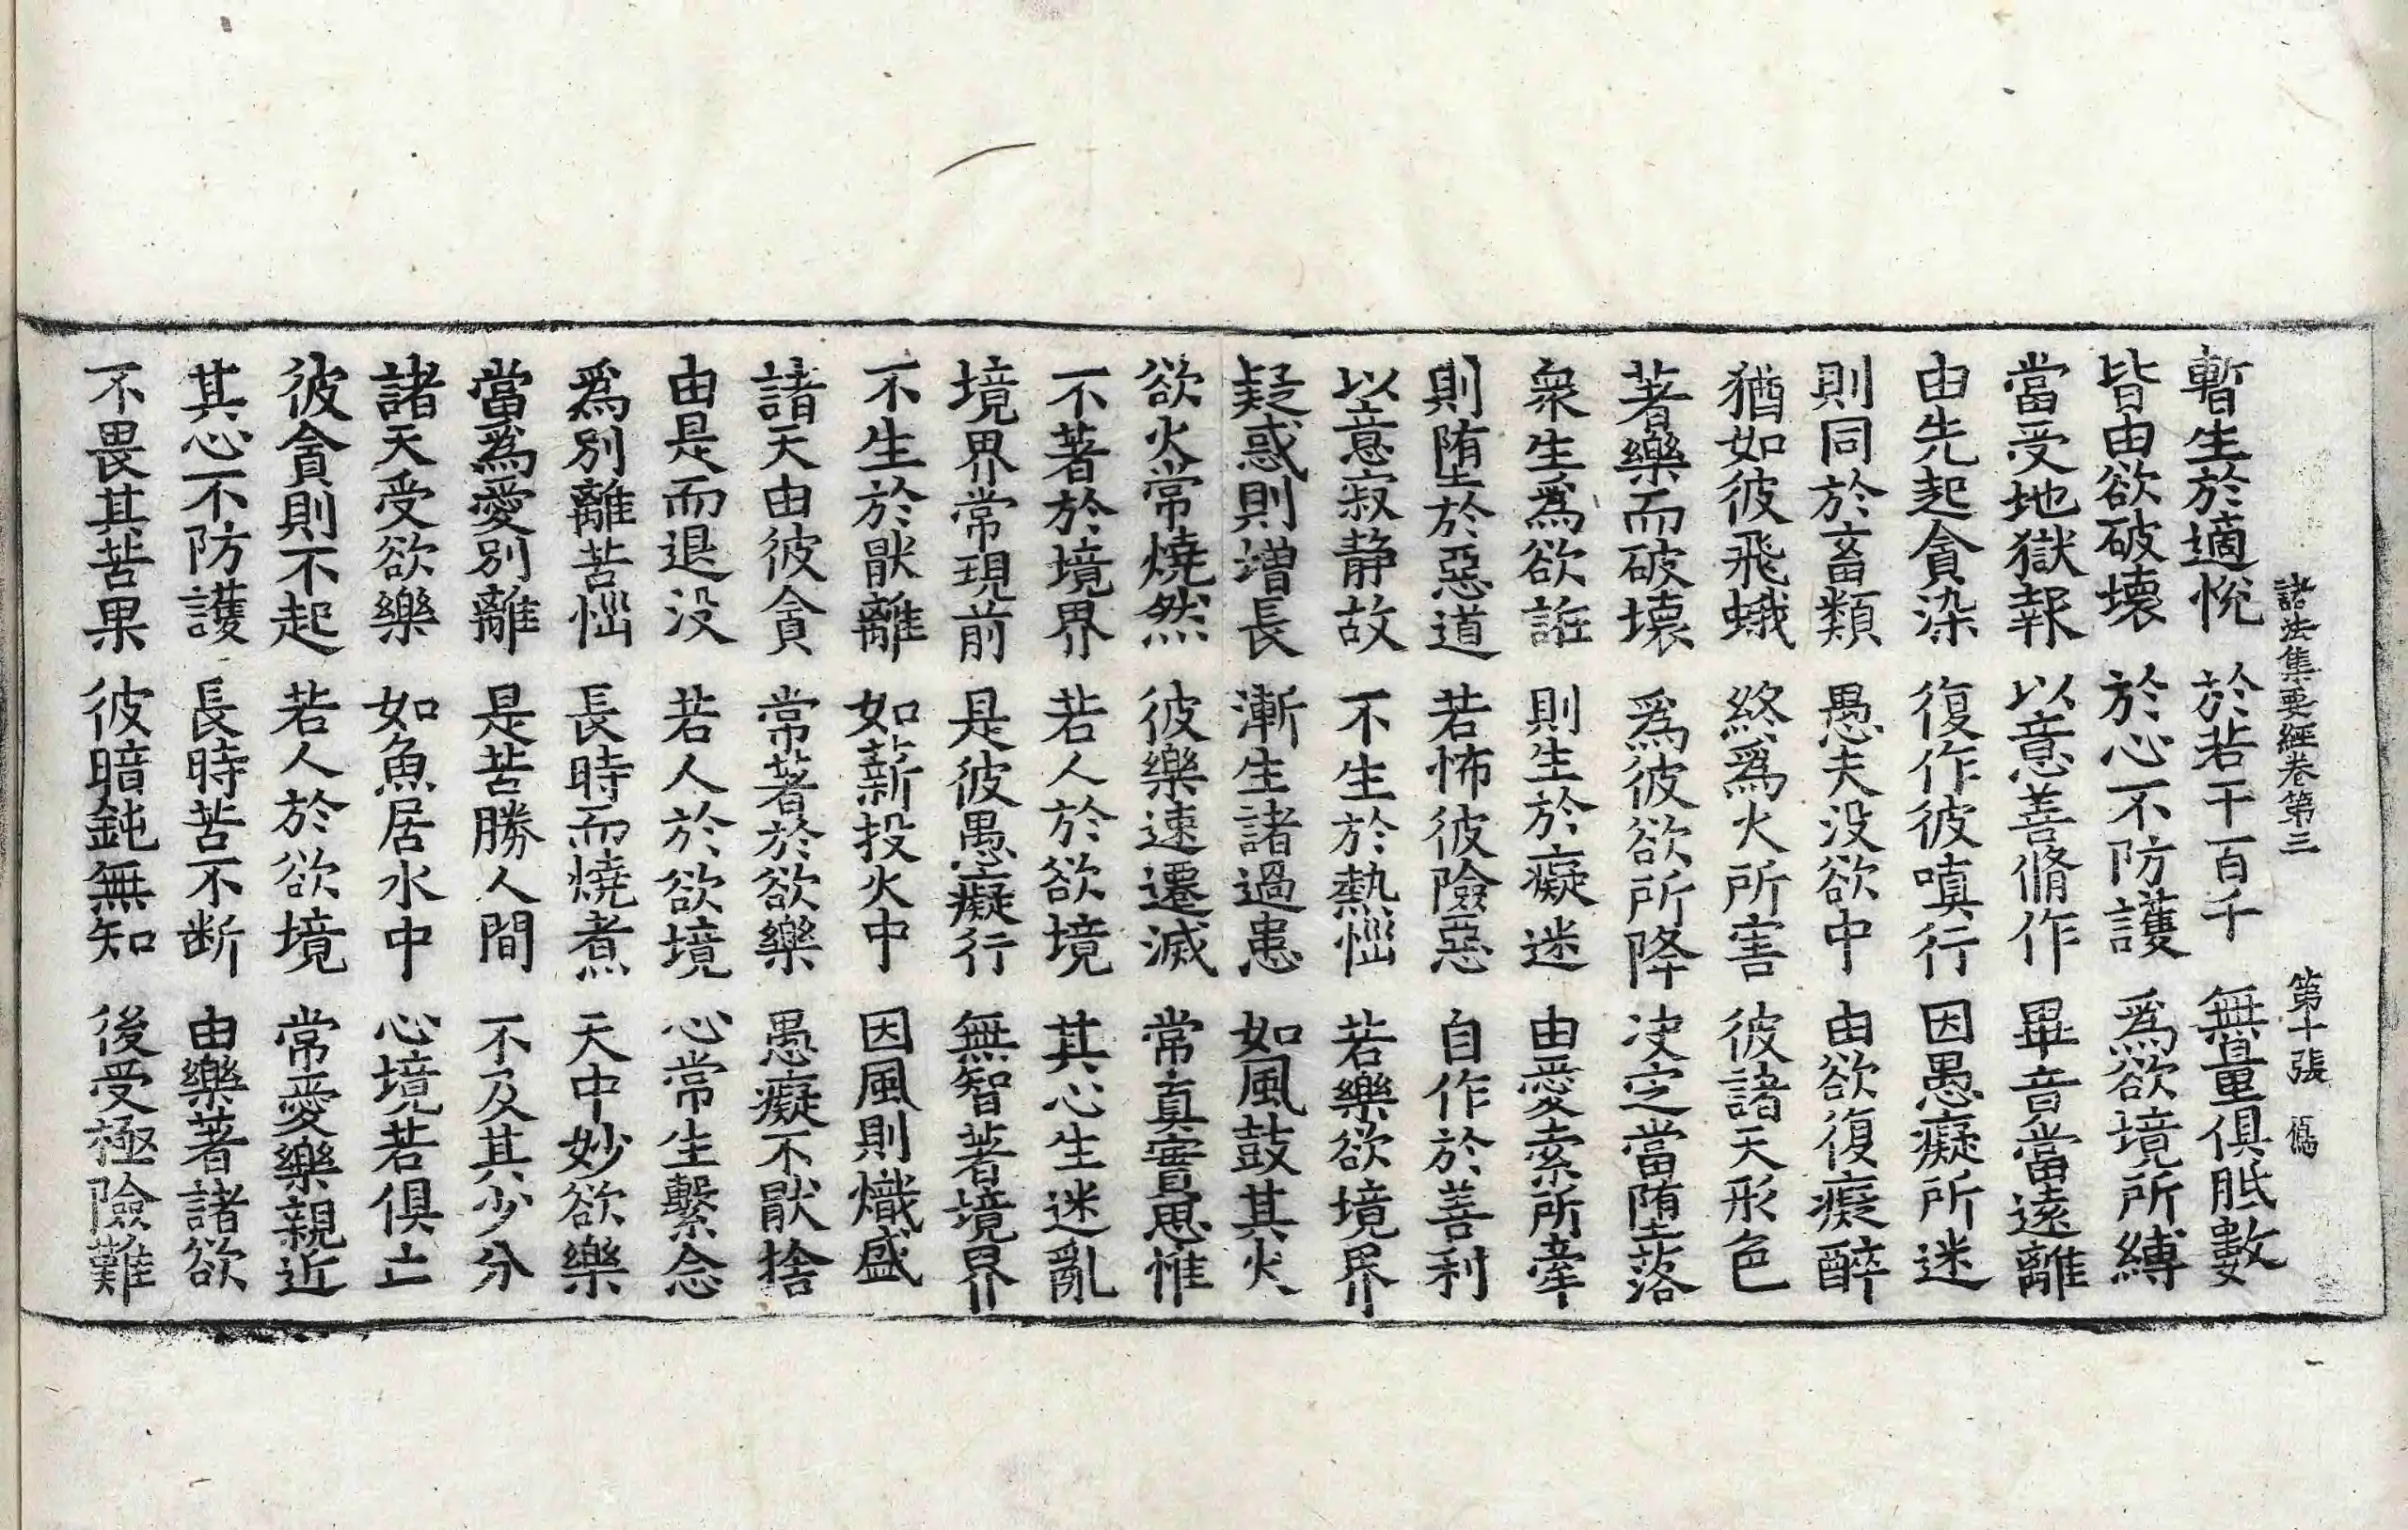 諸法集要經卷第三　第十張　傷
暫生於適悅　於若干百千　無量俱胝數
皆由欲破壞　於心不防護　爲欲境所縛
當受地獄報　以意善脩作　畢音當遠離
由先起貪染　復作彼嗔行　因愚癡所迷
則同於畜類　愚夫没欲中　由欲復癡醉
猶如彼飛蛾　終爲火所害　彼諸天形色
著樂而破壞　爲彼欲所降　决定當墮落
衆生爲欲誑　則生於癡迷　由愛索所牽
則墮於惡道　若怖彼險惡　自作於善利
以意寂静故　不生於熱惱　若樂欲境界
疑惑則增長　漸生諸過患　如風鼓其火
欲火常燒然　彼樂速遷滅　常真實思惟
不著於境界　若人於欲境　其心生迷亂
境界常現前　是彼愚癡行　無智著境界
不生於猒離　如薪投火中　因風則熾盛
諸天由彼貪　常著於欲樂　愚癡不猒捨
由是而退没　若人於欲境　心常生繫念
爲別離苦惱　長時而燒煮　天中妙欲樂
當爲愛別離　是苦勝人間　不及其少分
諸天受欲樂　如魚居水中　心境若俱亡
彼貪則不起　若人於欲境　常愛樂親近
其心不防護　長時苦不断　由樂著諸欲
不畏其苦果　彼暗鈍無知　後受極險難